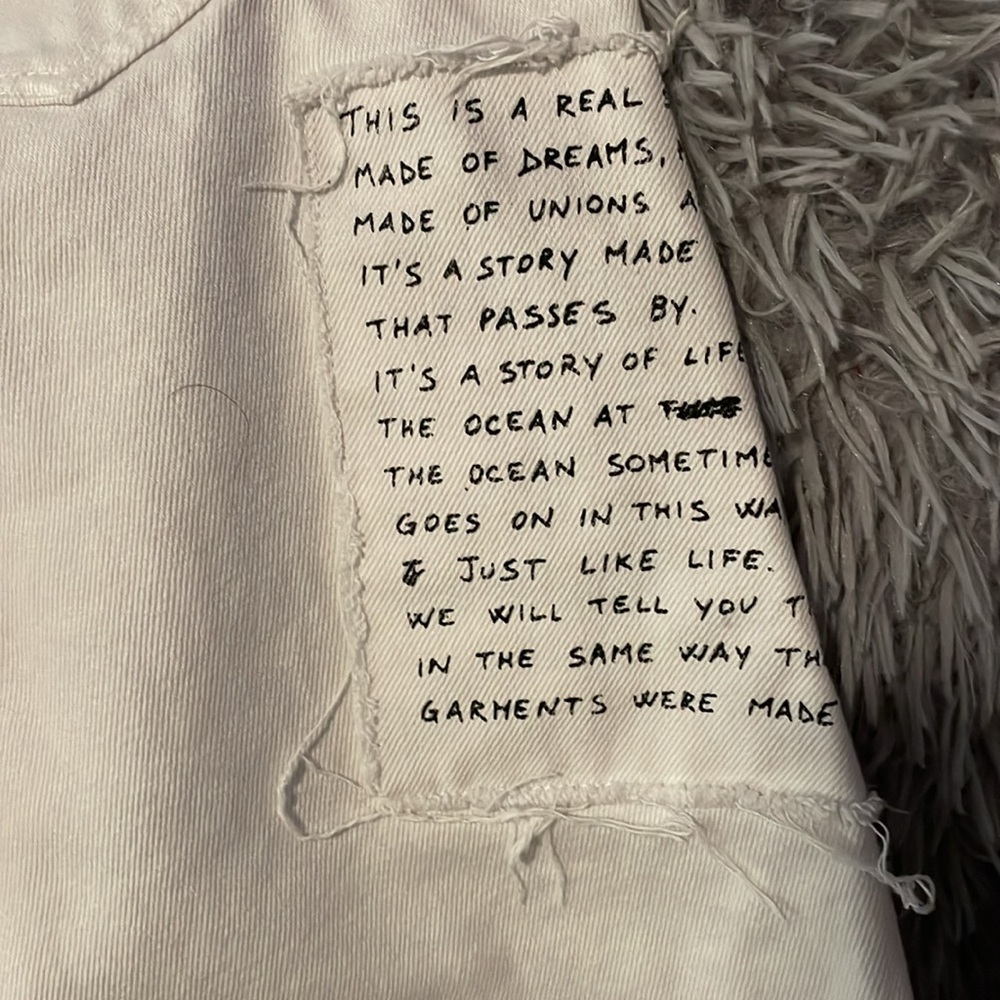 THIS IS A REAL
MADE OF DREAMS,
MADE OF UNIONS A
IT'S A STORY MADE
THAT PASSES BY.
IT'S A STORY OF LIFE
THE OCEAN AT
THE OCEAN SOMETIME
GOES ON IN THIS WA
& JUST LIKE LIFE.
WE WILL TELL YOU T
IN THE SAME WAY TH
GARMENTS WERE MADE